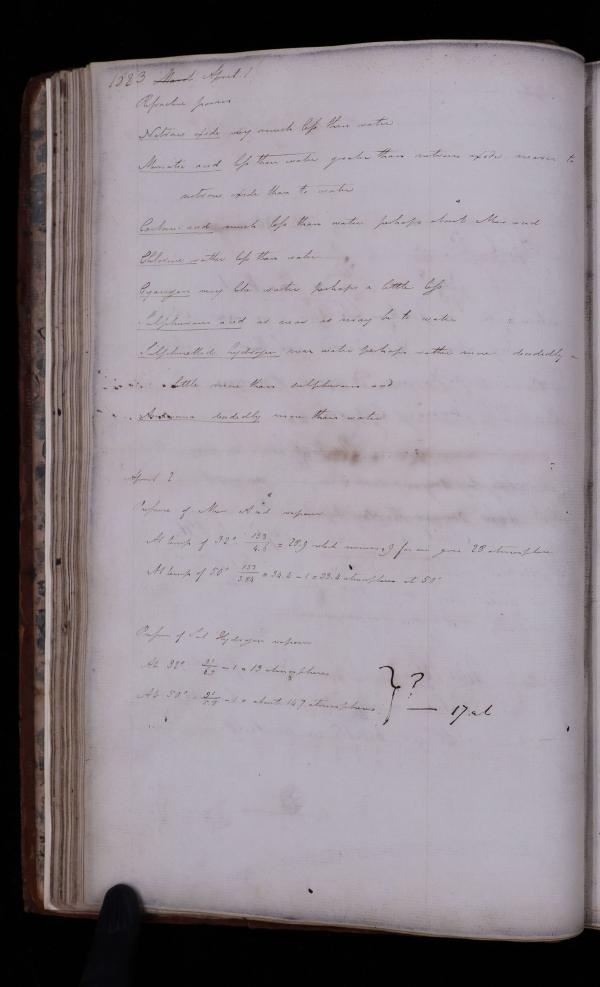 1823 March April 1
Refractive powers
Nitrous oxide very much less than water
Muriatic acid less than water greater than nitrous oxide nearer to
nitrous oxide than to water
Carbonic acid much less than water perhaps about Mur acid
Chlorine rather less than water
Cyanogen very like water perhaps a little less
Sulphurous acid as near as may be to water
Sulphuretted hydrogen near water perhaps rather more decidedly a
little more than sulphurous acid
Ammonia decidedly more than water
April 2
Pressure of Mur Acid vapour
At temp of 32° = 28.9 which minus for air gives 28 atmospheres
At temp of 50° = 34.4 - 1 = 33.4 atmospheres at 50°
Pressure of Sul Hydrogen vapour
At 32° - 1 = 13 atmospheres
At 50° - 1 = about 14.7 atmospheres
? — 17 at